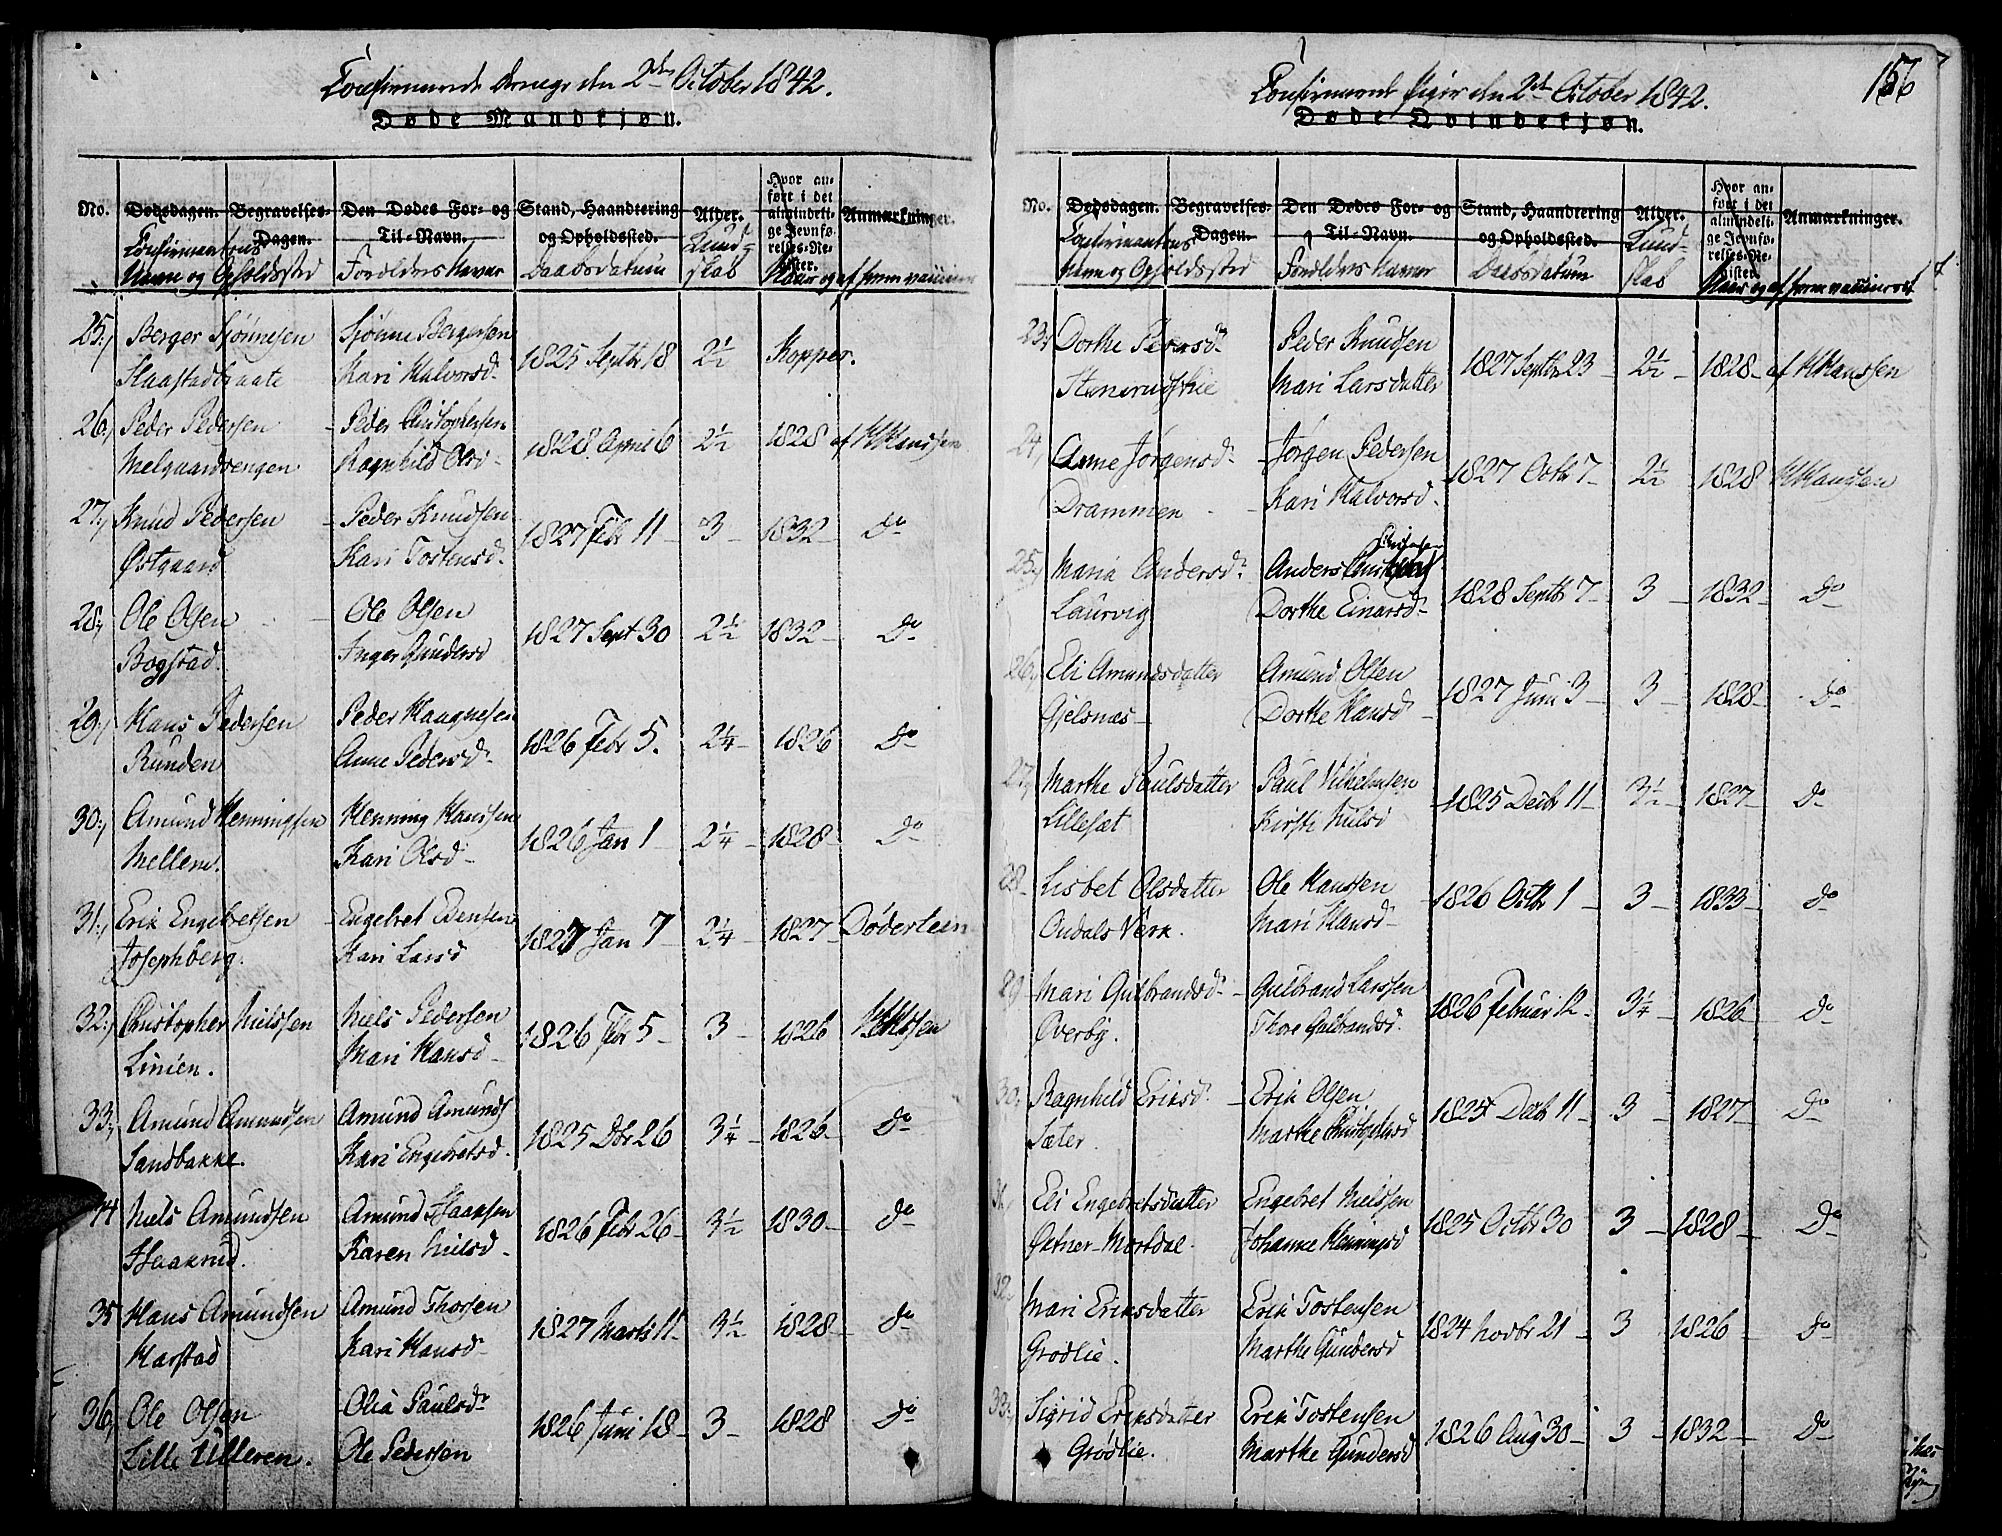 Confirmerede Drenge den 2den October 1842.
Døde Mandkjøn.
No.
Dødsdagen.
Begravelses-Dagen.
Den Dødes For- og Til-Navn.
Stand, Haandtering og Opholdssted.
Alder.
Hvor anført i det almindelige Jevnførelses-Register.
Anmærkninger.
Confirmantens Navn og Opholdssted
Forældres Navne
Daabsdatum
Kundskab
Naar og af hvem vaccineret
25, Berger Sjönnesen Sjönne Bergersen 1825 Septbr 18 2½ Kopper.
Haastadbraate Kari Halvorsd.
26, Peder Pedersen - Peder Christophersen 1828. April 6 2½ 1828 af H Hanssen
Melgaardsengen Ragnhild Olsd-
27, Knud Pedersen - Peder Knudsen 1827 Febr 11 - 3 - 1832 - Do
Østgaard Kari Tostensd.
28, Ole Olsen - Ole Olsen 1827 Sept 30 2½ 1832 - Do
Bogstad Inger Gundersd
29, Hans Pedersen Peder Haagnesen 1826 Febr 5. 2¼ - 1826 Do
Runden Anne Pedersd.
30, Amund Henningsen Henning Hanssen 1826 Jan 1 - 2¼ - 1828 - Do
Mellem. Kari Olsd-
31, Erik Engebretsen - Engebret Evensen 1827 Jan 7 - 2¼ - 1827 - Døderlein
Josephberg. Kari Larsd
32, Christopher Nielssen Niels Pedersen 1826 Fbr 5 - 3 - 1826 HHssen
Linien. Mari Hansd-
33, Amund Amundsen Amund Amunds 1825 Dbr 26 3¼ - 1826 - Do
Sandbakke. Kari Engebretsd.
34 Niels Amundsen Amund Haagsen 1826 Febr 26 - 3½ 1830 - Do
Haakrud. Karen Nielsd-
35 Hans Amundsen Amund Thorsen 1827 Marts 11 - 3½ 1828 - Do
Harstad Kari Hansd-
36, Ole Olsen Olia Paulsdr 1826 Juni 18 - 3 - 1828 Do
Lille Ulleren. Ole Pedersen
156
Confirmerede Piger den 2den October 1842.
Døde Qvindekjøn.
No.
Dødsdagen.
Begravelses-Dagen.
Den Dødes For- og Til-Navn.
Stand, Haandtering og Opholdssted.
Alder.
Hvor anført i det almindelige Jevnførelses-Register.
Anmærkninger.
Confirmantens Navn og Opholdssted
Forældres Navne
Daabsdatum
Kundskab
Naar og af hvem vaccineret
23, Dorthe Persd. Peder Knudsen 1827 Septbr 23 - 2½ - 1828 - af H Hanssen
Mari Larsdatter
24, Anne Jörgensd. - Jörgen Pedersen 1827 Octbr 7 - 2½ 1828 H Hanssen
Drammen - Kari Halvorsd.
25, Maria Andersd. Anders 1828 Septbr 7 - 3 - 1832 - Do
Laurvig Dorthe Einarsd-
26, Eli Amundsdatter Amund Olsen 1827 Juni 3 - 3 - 1828 - Do
Gjelsnæs - Dorthe Hansd -
27, Marthe Paulsdatter Paul Vilhelmsen 1825 Decbr 11 - 3½ - 1827 - Do
Lillesæt Kirsti Nilsd
28 - Lisbet Olsdatter Ole Hanssen 1826 Octbr 1 - 3 - 1833 - Do
Oudals Værk. Mari Hansd-
29 Mari Gulbrandsd. - Gulbrand Larssen 1826 Februar 12 - 3¼ - 1826 - Do
Overby. Thore Gulbrandsd.
30, Ragnhild Eriksd. - Erik Olsen 1825 Decbr 11 - 3 - 1827 - Do
Sæter. Marthe Christophersd
31, Eli Engebretsdatter Engebret Nielssen 1825 Octbr 30 3 - 1828 - Do
Øxner-Mortdal. Johanne Henningsd
32 Mari Eriksdatter Erik Tostensen 1824 Novbr 21 - 3 1826 - Do
Grødlie. Marthe Gundersd
33, Sigrid Eriksdatter Erik Tostensen 1826 Aug 30 - 3 - 1832 - Do
Grødlie. Marthe Gundersd